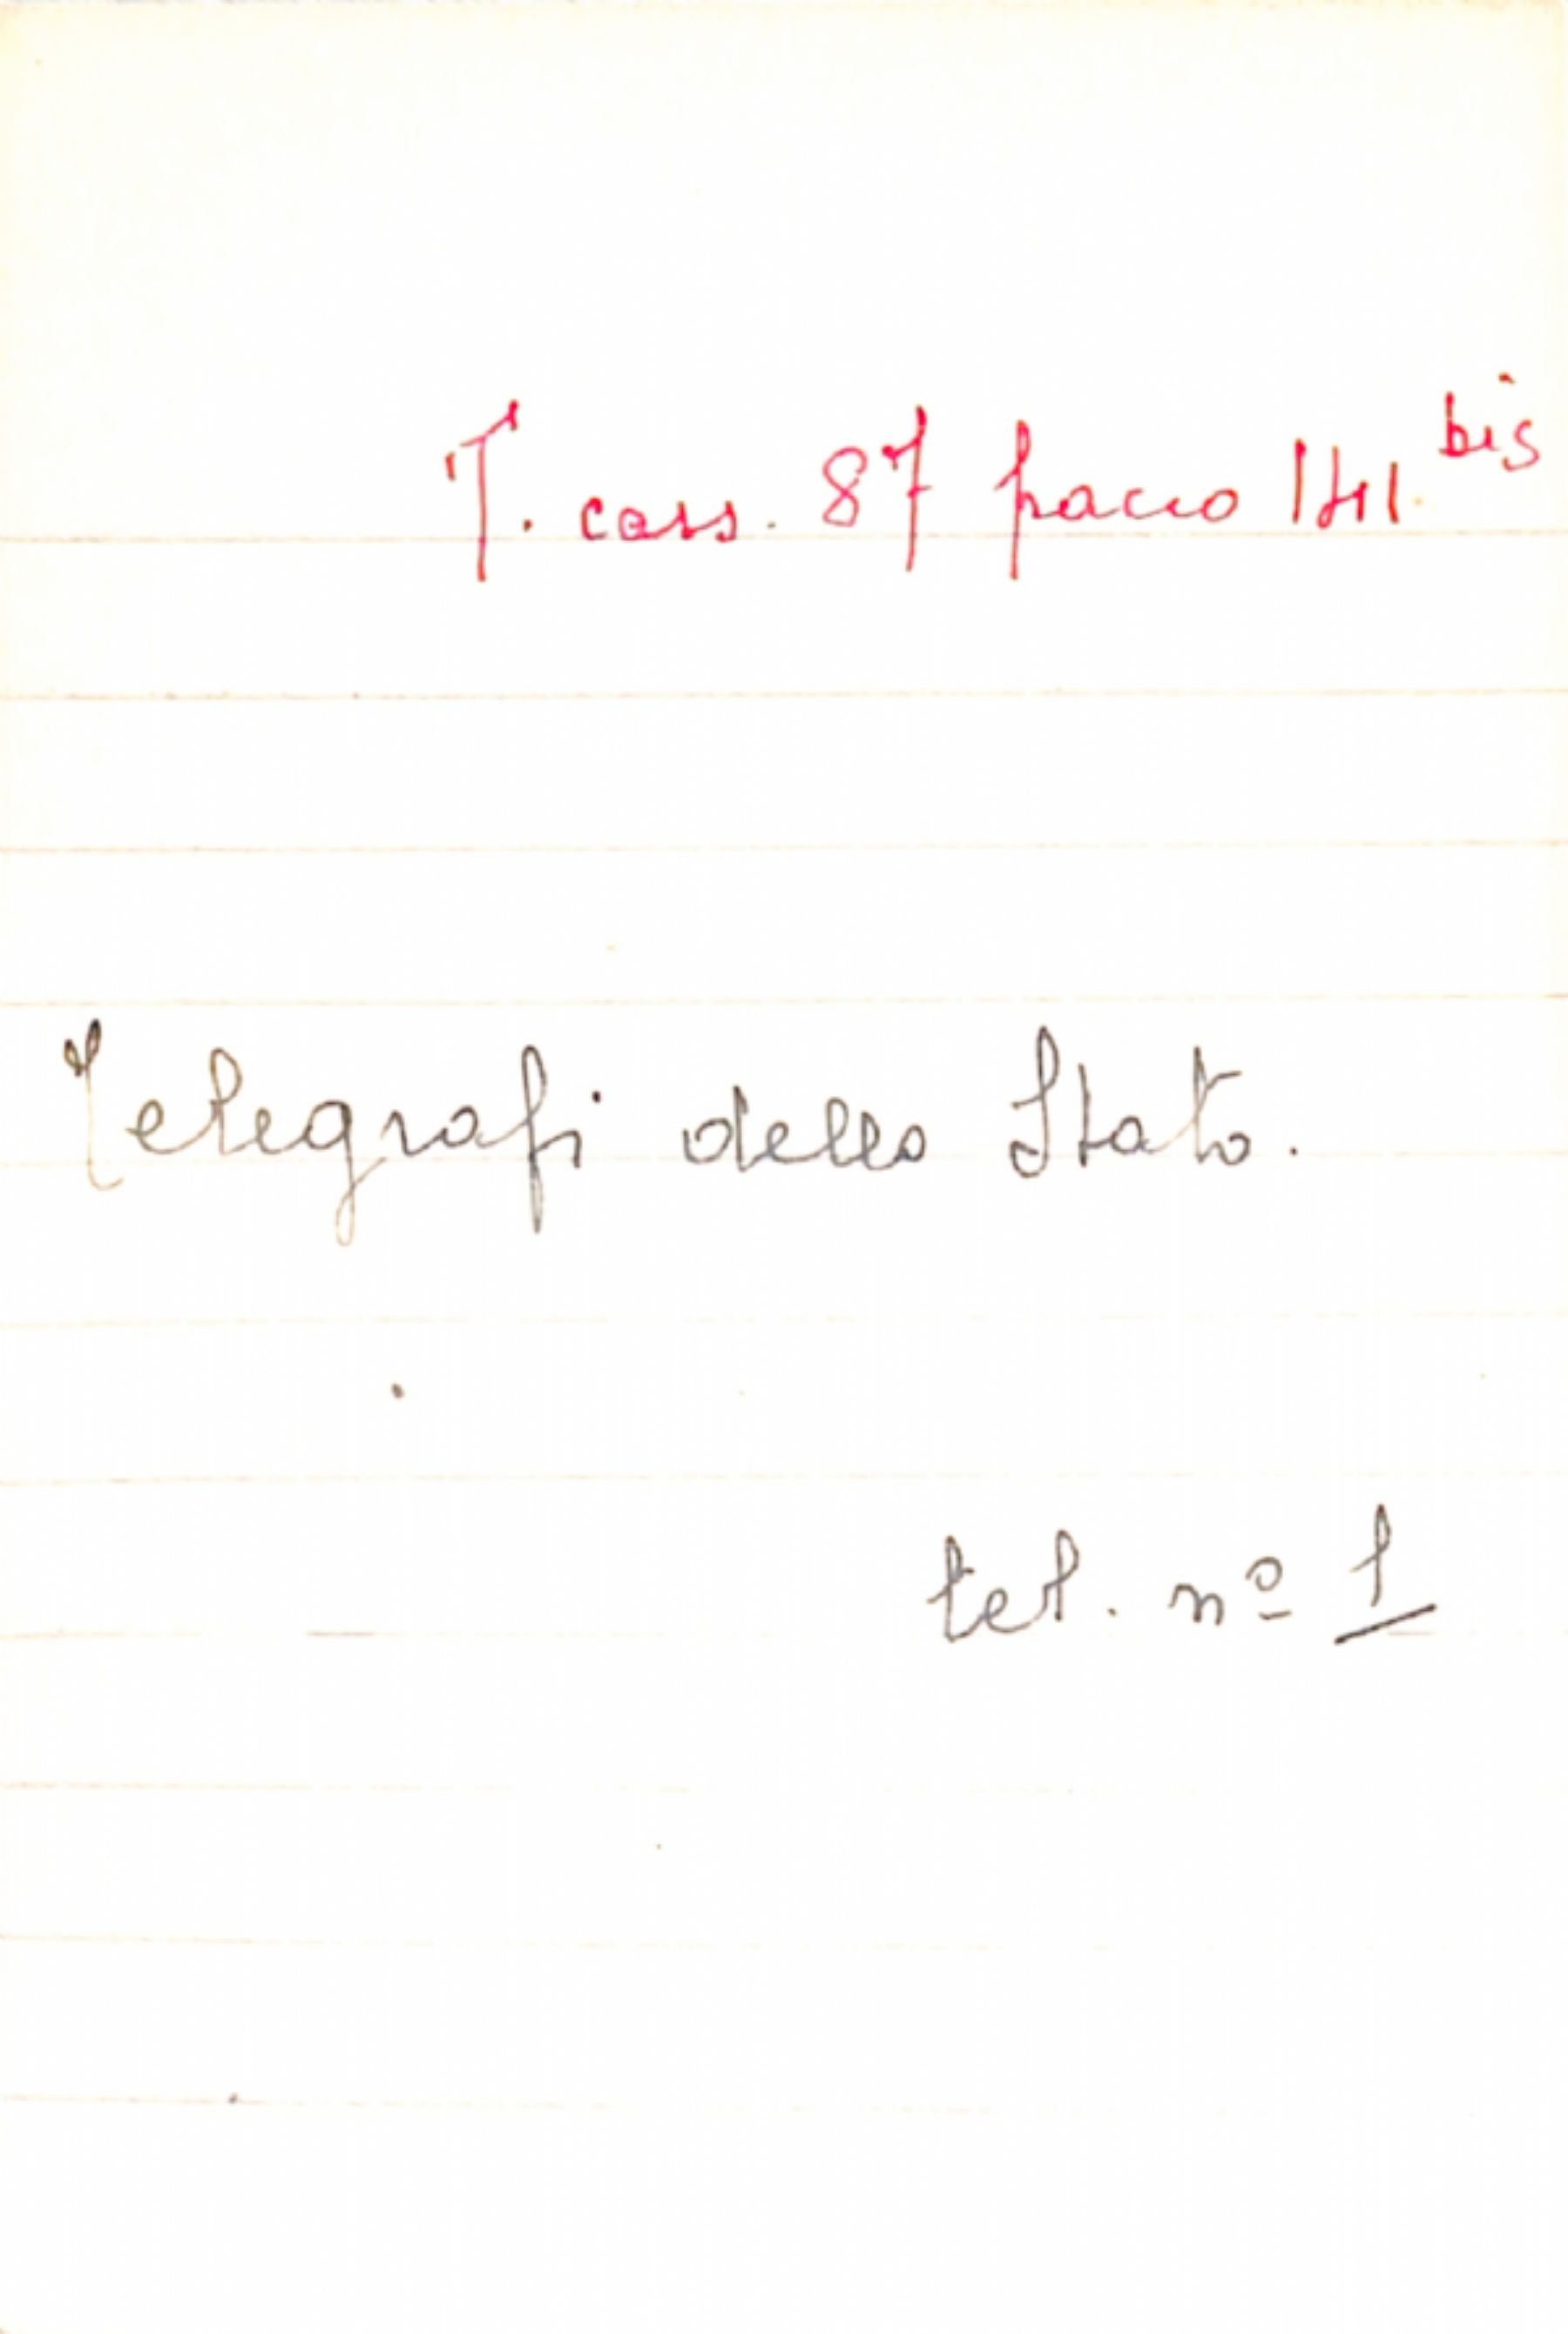 T. cass. 87 pacco 141 bis
Telegrafi dello Stato.
tel. nº 1